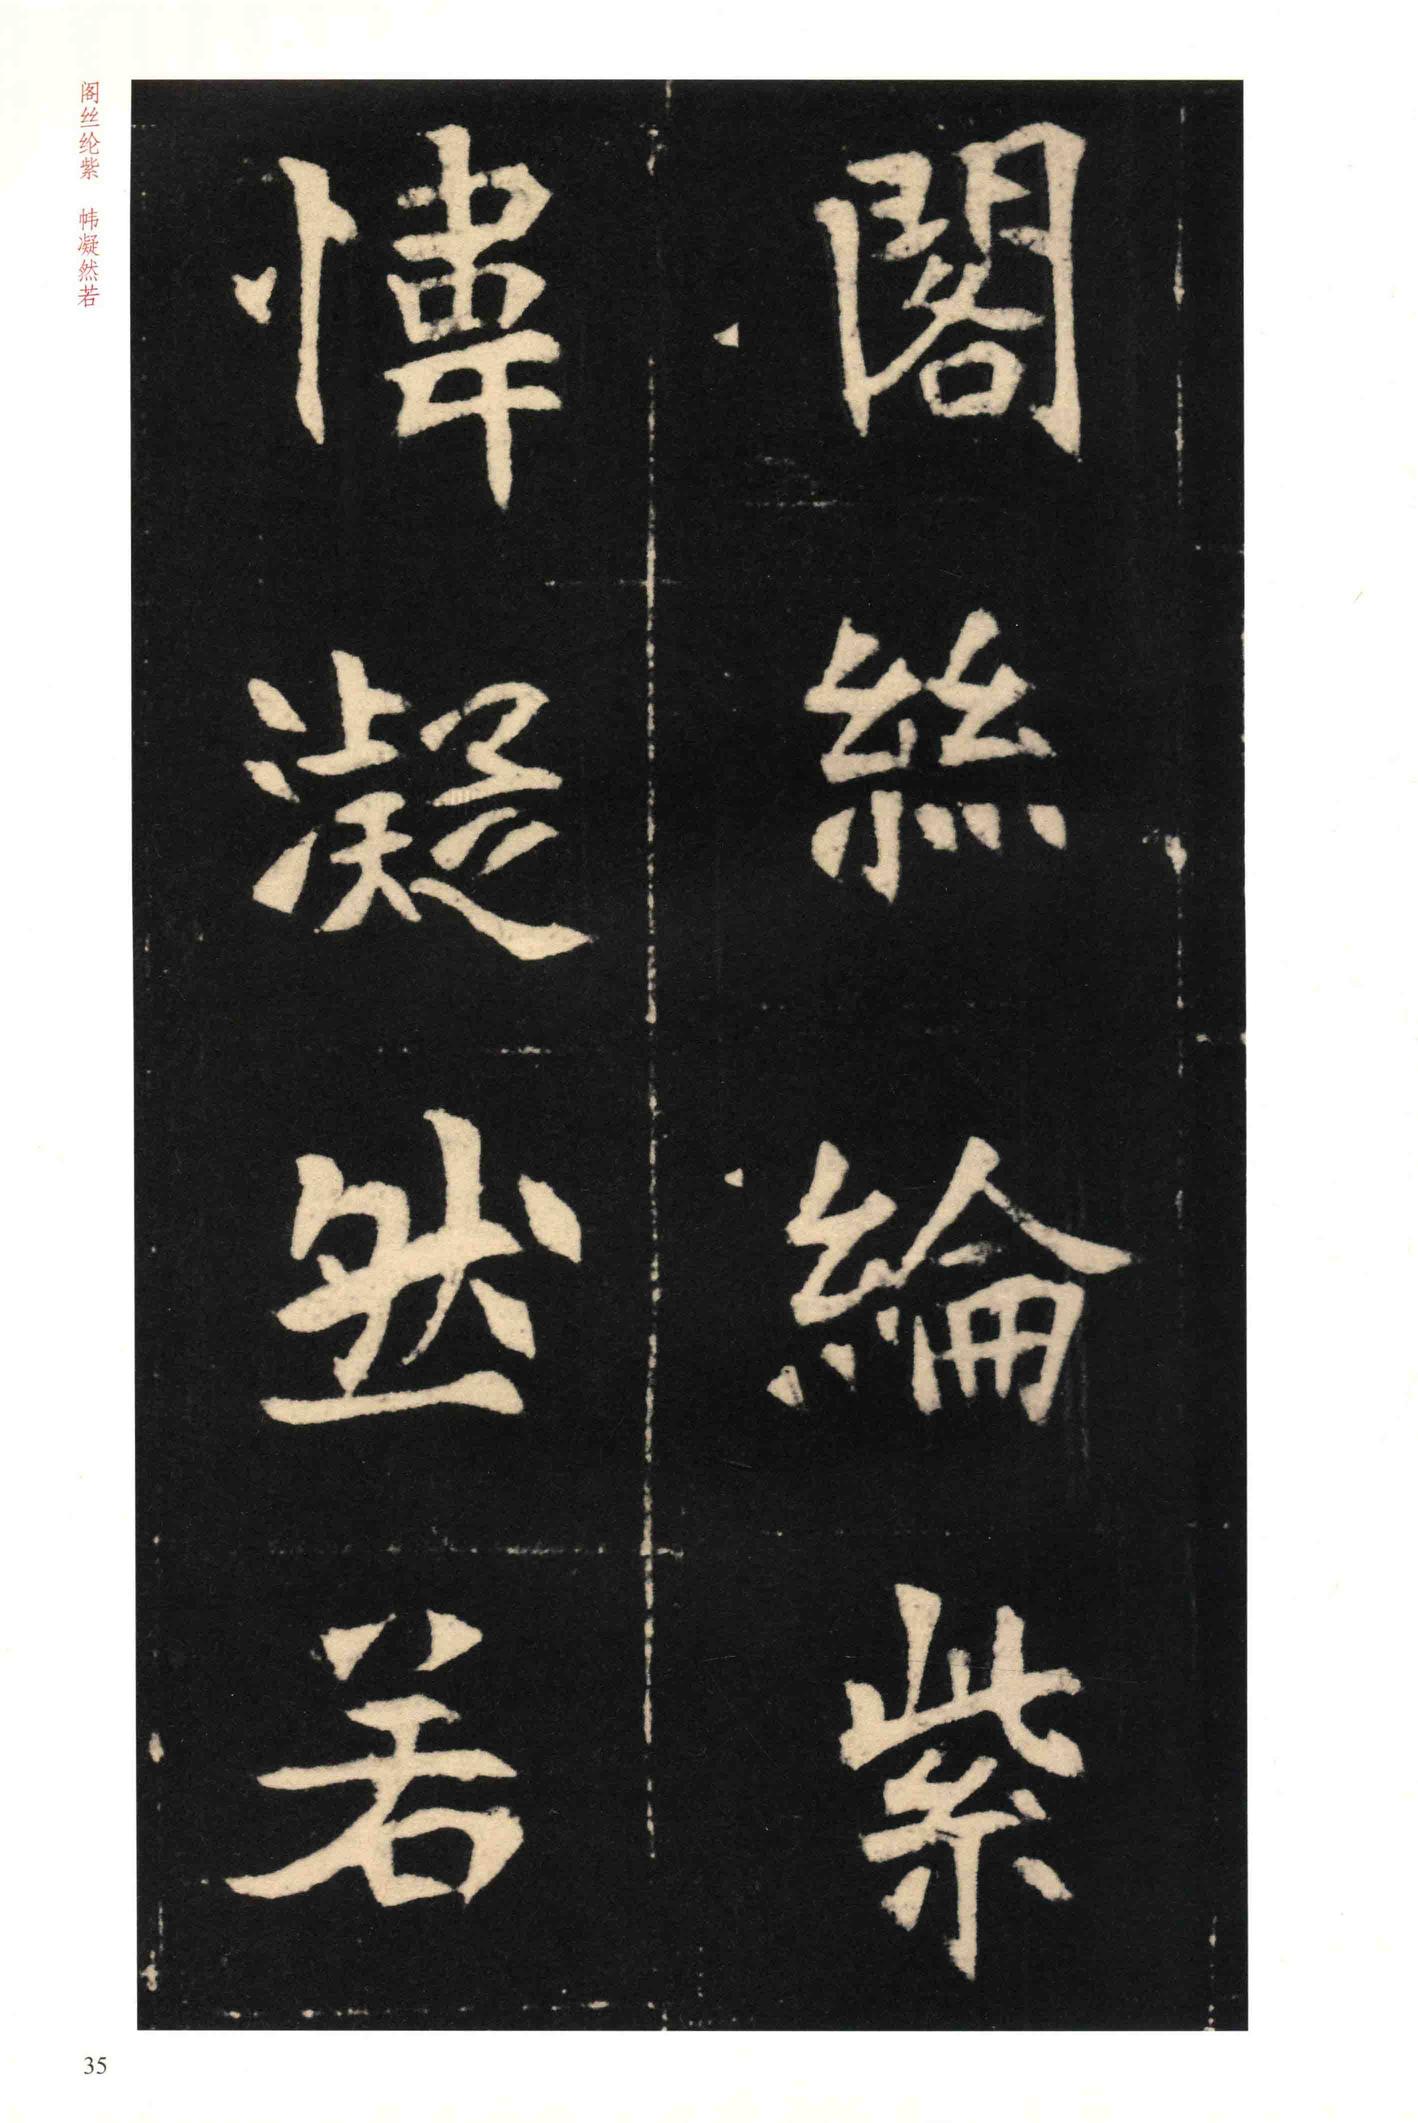 閣絲綸紫
幃凝然若
阁丝纶紫　帏凝然若
35